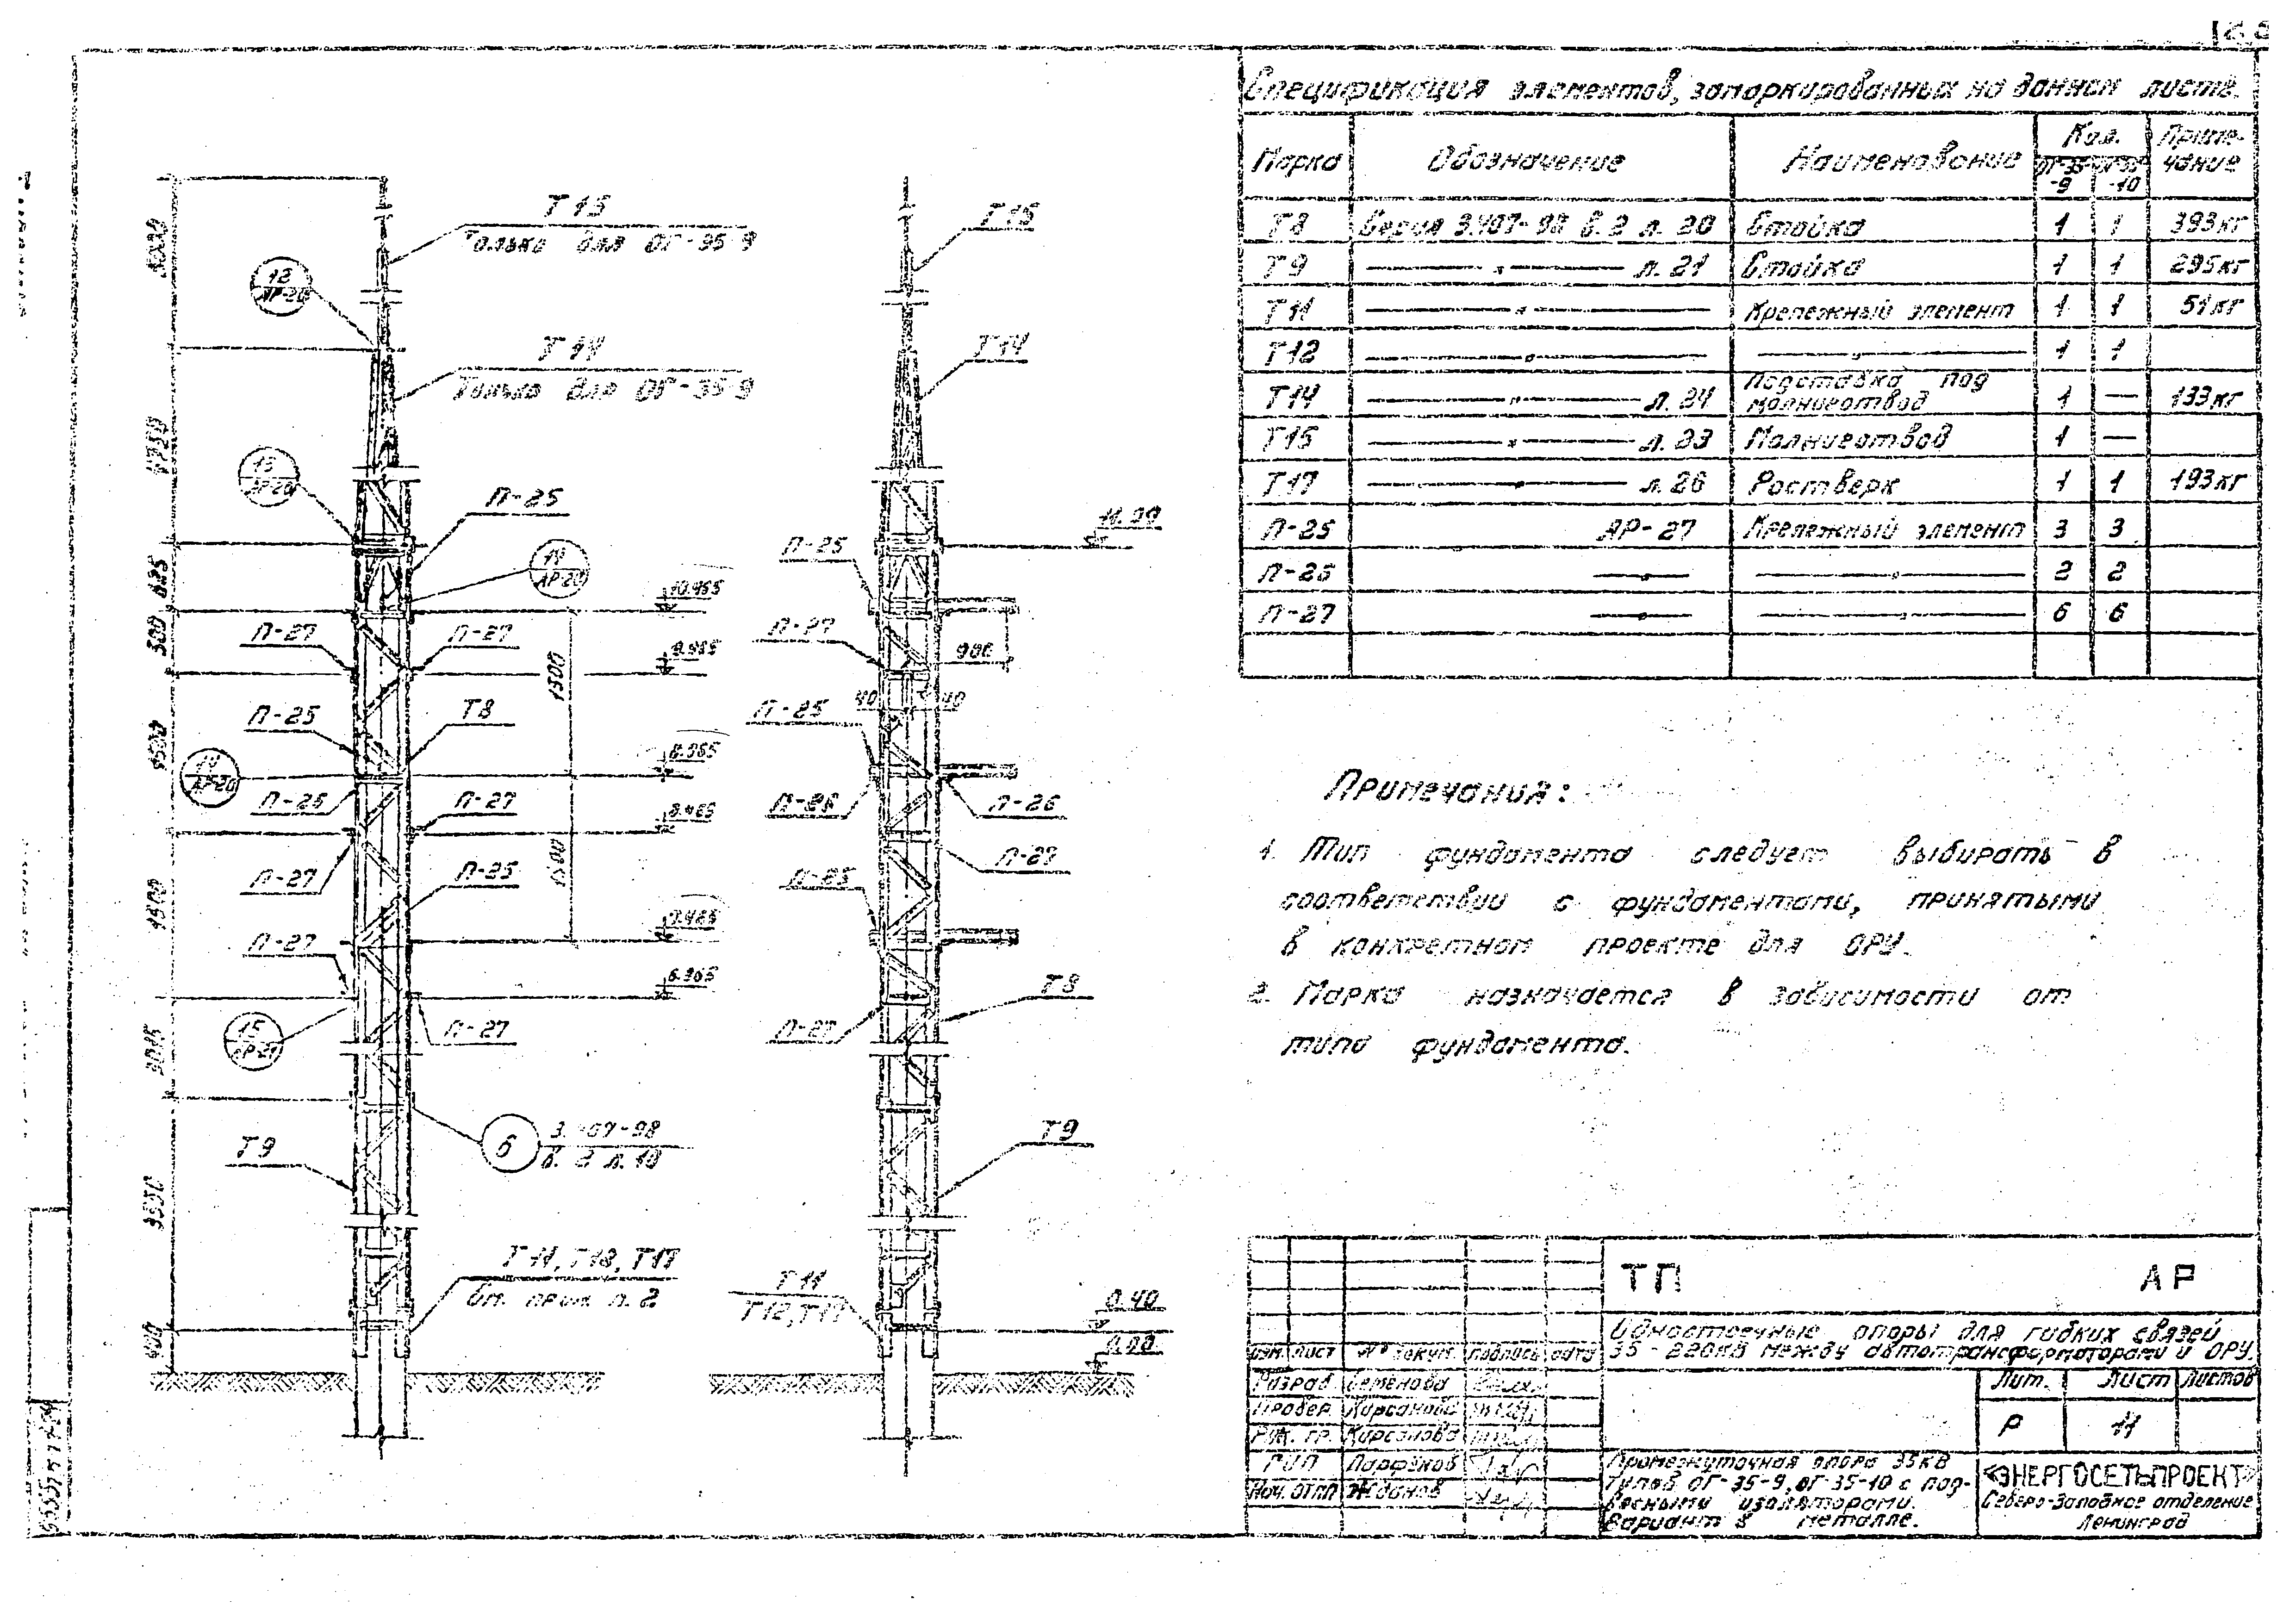 Спецификация элементов, замаркированных на данном листе.
Марка Обозначение Наименование Кол. Приме-чание
ОГ-35-9 ОГ-35-10
Т8 Серия 3.407-98 в.2 л. 20 Стойка 1 1 393кг
Т9 —"— л. 21 Стойка 1 1 295кг
Т11 —"— Крепежный элемент 1 1 51кг
Т12 —"— —"— 1 1
Т14 —"— л. 24 Подставка под молниеотвод 1 — 133кг
Т15 —"— л. 23 Молниеотвод 1 —
Т17 —"— л. 26 Ростверк 1 1 193кг
П-25 АР-27 Крепежный элемент 3 3
П-26 —"— —"— 2 2
П-27 —"— —"— 6 6
Примечания:
1. Тип фундамента следует выбирать в
соответствии с фундаментами, принятыми
в конкретном проекте для ОРУ.
2. Марка назначается в зависимости от
типа фундамента.
Т15
Только для ОГ-35-9
12
АР-20
Т14
Только для ОГ-35-9
13
АР-20
П-25
14
АР-20
10.465
П-27
П-27
П-25
Т8
14
АР-20
П-26
П-27
П-27
П-25
П-27
15
АР-21
П-27
6
3.407-98
в. 2 л. 10
Т9
Т11, Т12, Т17
См. прим. п. 2
4750
500
1500
1500
3550
400
1500
1500
Т15
Т14
11.00
П-25
П-27
900
40
40
П-25
П-26
П-26
П-27
П-25
Т8
П-27
Т9
Т11
Т12, Т17
0.40
0.00
ТП АР
Одностоечные опоры для гибких связей
35-220кВ между автотрансформаторами и ОРУ.
Изм. Лист № докум. Подпись Дата
Разраб. Семенова
Провер. Кирсанова
Рук. гр. Кирсанова
ГИП Парфенов
Нач. ОТПП Жданов
Лит. Лист Листов
Р 11
Промежуточная опора 35кВ
типов ОГ-35-9, ОГ-35-10 с под-
весными изоляторами.
Вариант в металле.
«ЭНЕРГОСЕТЬПРОЕКТ»
Северо-Западное отделение
Ленинград